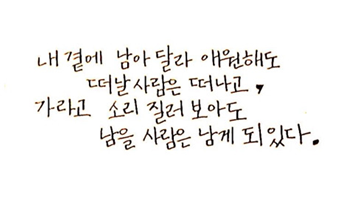 내 곁에 남아 달라 애원해도
떠날 사람은 떠나고,
가라고 소리 질러 보아도
남을 사람은 남게 되있다.